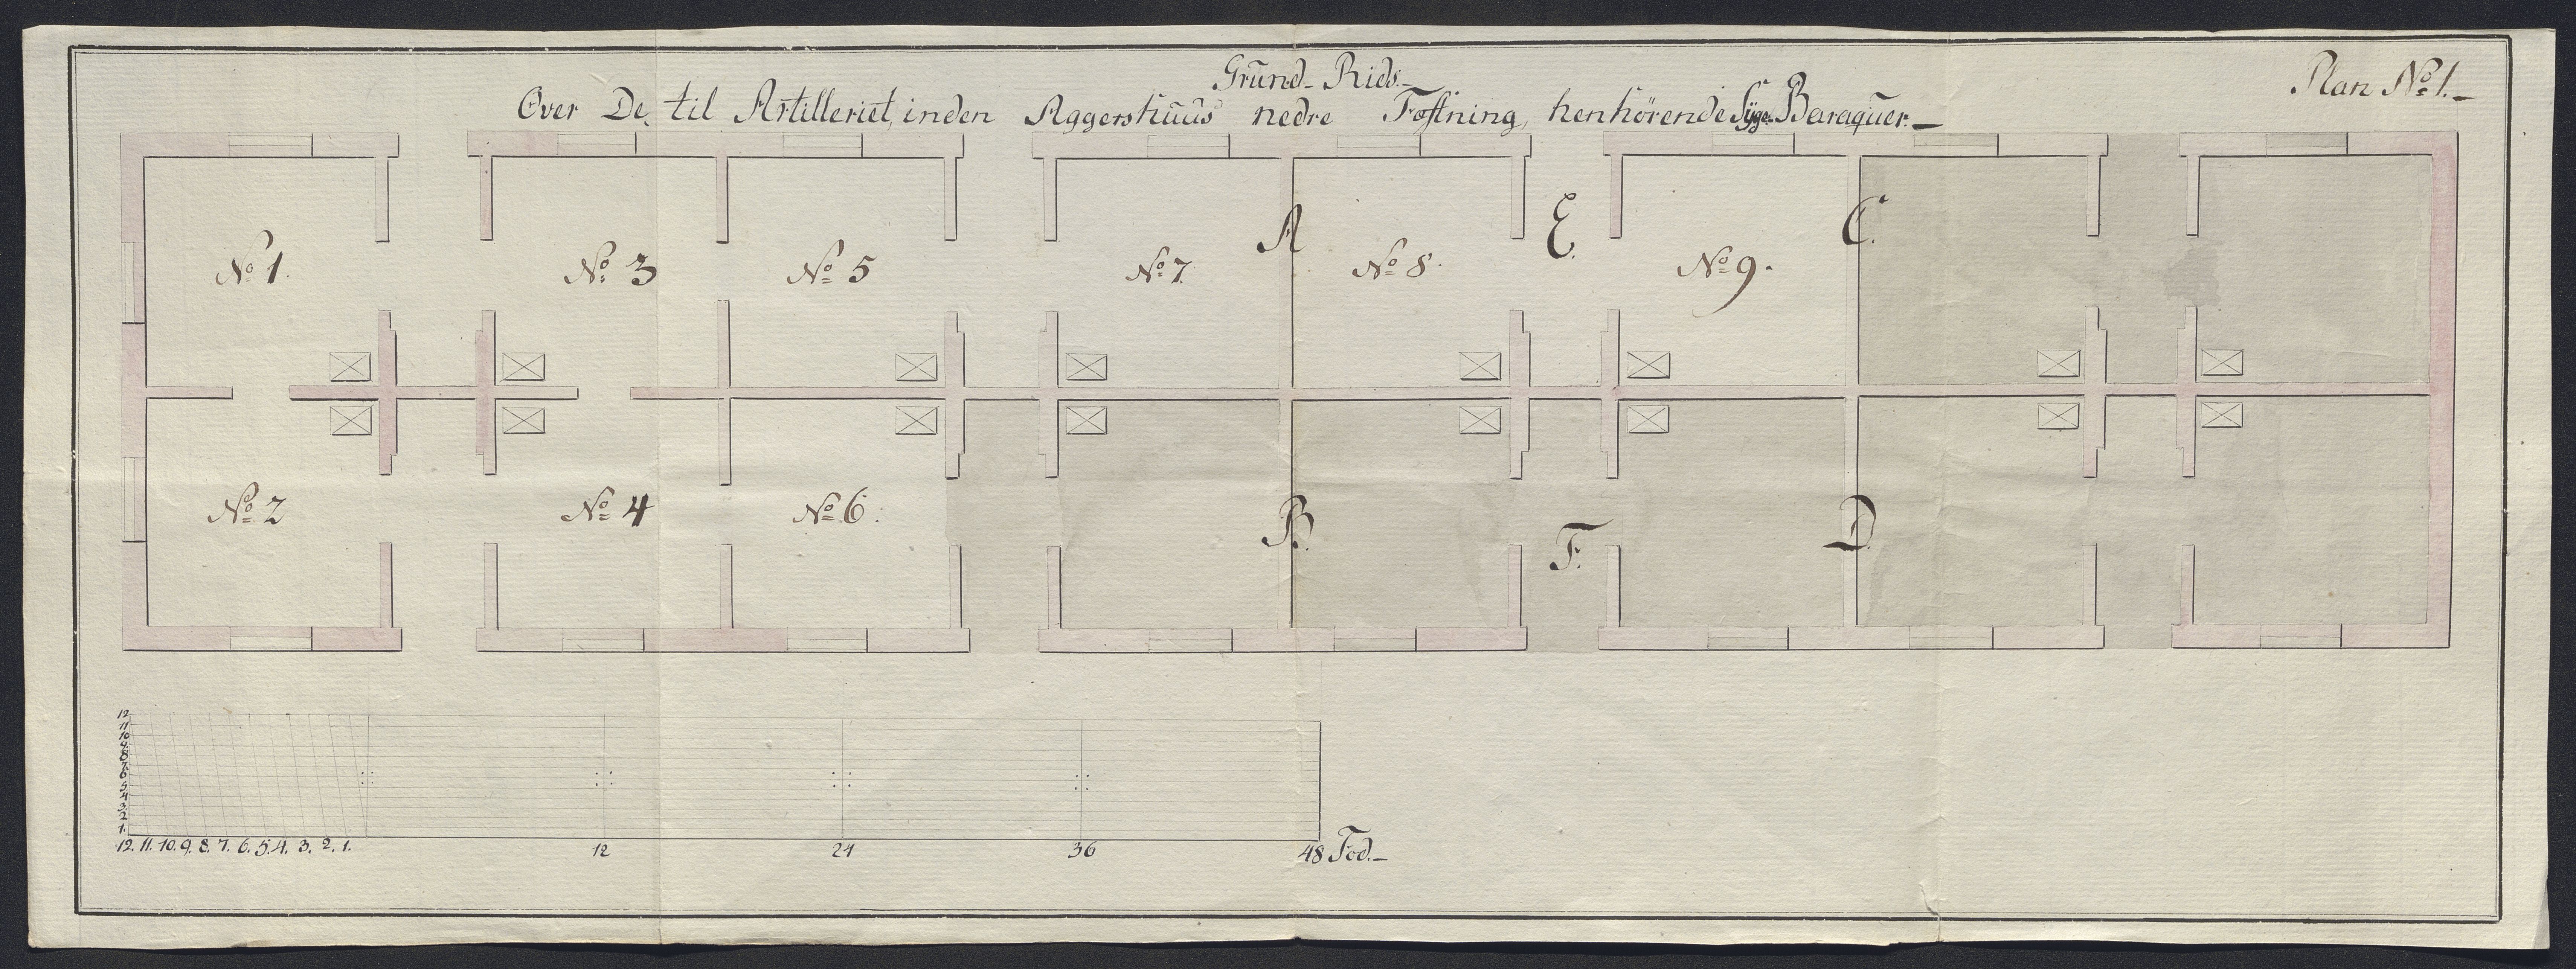 Grund-Rids.
Plan No 1.
Over De, til Artilleriet, inden Aggershuus nedre Fæstning, henhörende Syge Baraquer.
No 1.
No 3
No 5
No 7
A
No 8.
E.
No 9.
C.
No 2
No 4
No 6.
B.
F.
D.
12
11
10
9
8
7
6
5
4
3
2
1.
12. 11. 10. 9. 8. 7. 6. 5. 4. 3. 2. 1. 12 24 36 48 Fod.